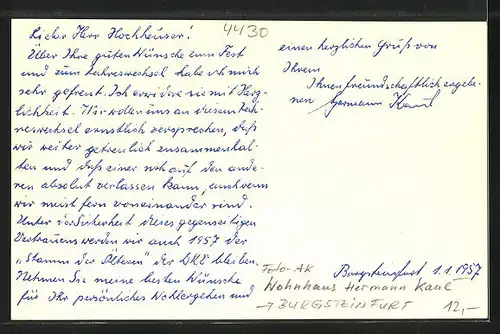 4430
Lieber Herr Hochheuser!
Über Ihre guten Wünsche zum Fest
und zum Jahreswechsel habe ich mich
sehr gefreut. Ich erwidere sie mit Herz-
lichkeit. Wir wollen uns an diesem Jah-
reswechsel ernstlich versprechen, daß
wir weiter getreulich zusammenhal-
ten und daß einer sich auf den ande-
ren absolut verlassen kann, auch wenn
wir meist fern voneinander sind.
Unter der Sicherheit dieses gegenseitigen
Vertrauens werden wir auch 1957 der
"Stamm der Älteren" der bleiben.
Nehmen Sie meine besten Wünsche
für Ihr persönliches Wohlergehen und
einen herzlichen Gruß von
Ihrem
Ihnen freundschaftlich ergebe-
nen Hermann Kaul
Burgsteinfurt 1.1.1957
Foto-AK
Wohnhaus Hermann Kaul
→ BURGSTEINFURT 12,-